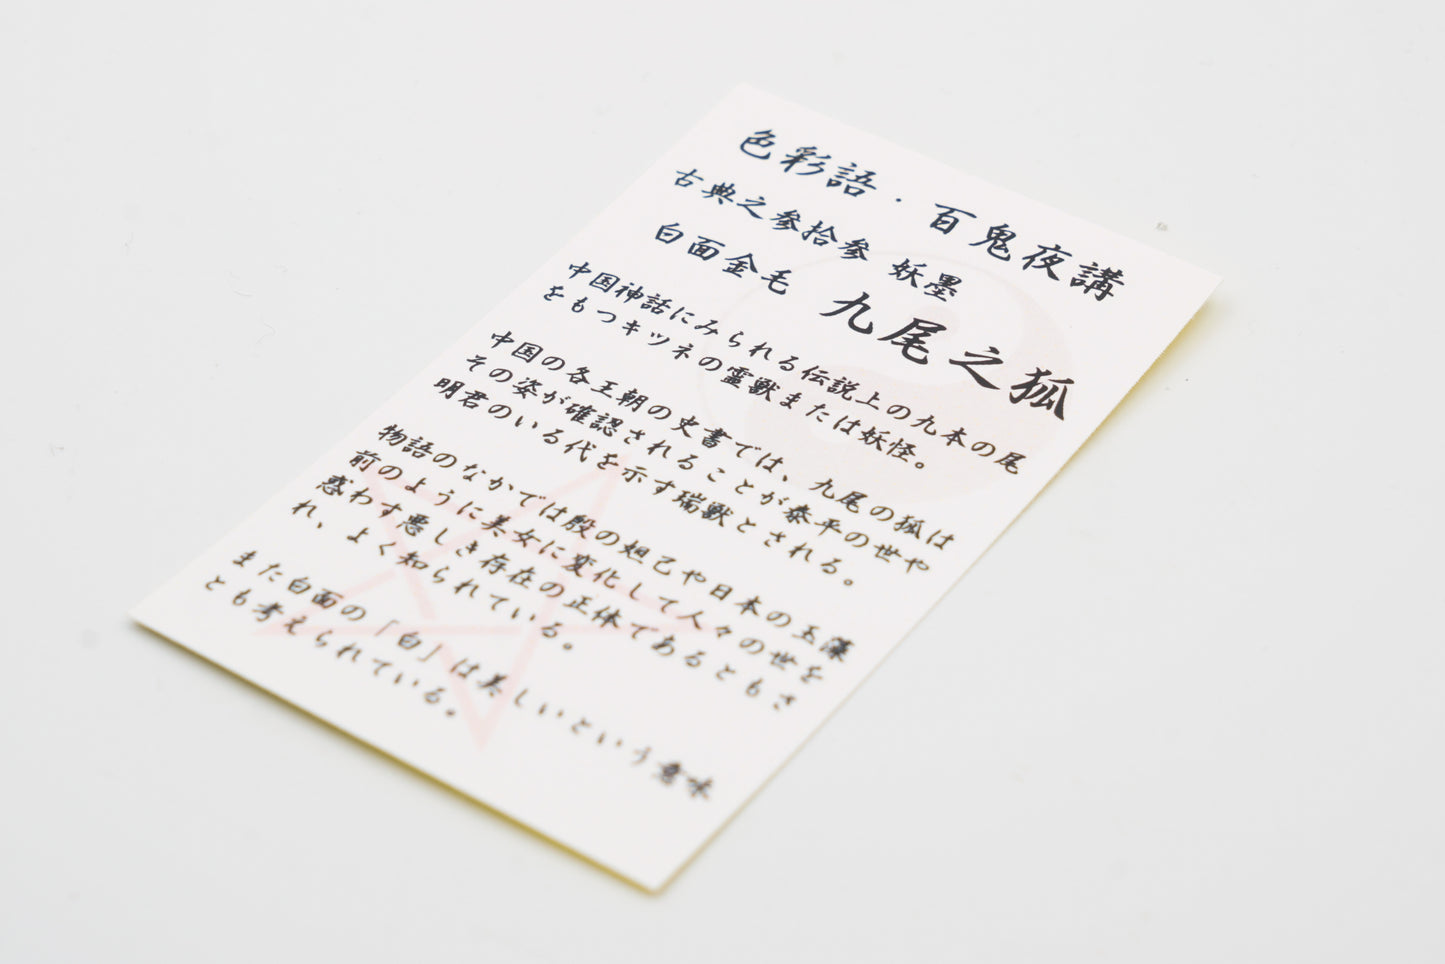 色彩語・百鬼夜講
古典之参拾参 妖墨
白面金毛 九尾之狐
中国神話にみられる伝説上の九本の尾
をもつキツネの霊獣または妖怪。
中国の各王朝の史書では、九尾の狐は
その姿が確認されることが泰平の世や
明君のいる代を示す瑞獣とされる。
物語のなかでは殷の妲己や日本の玉藻
前のように美女に変化して人々の世を
惑わす悪しき存在の正体であるともさ
れ、よく知られている。
また白面の「白」は美しいという意味
とも考えられている。